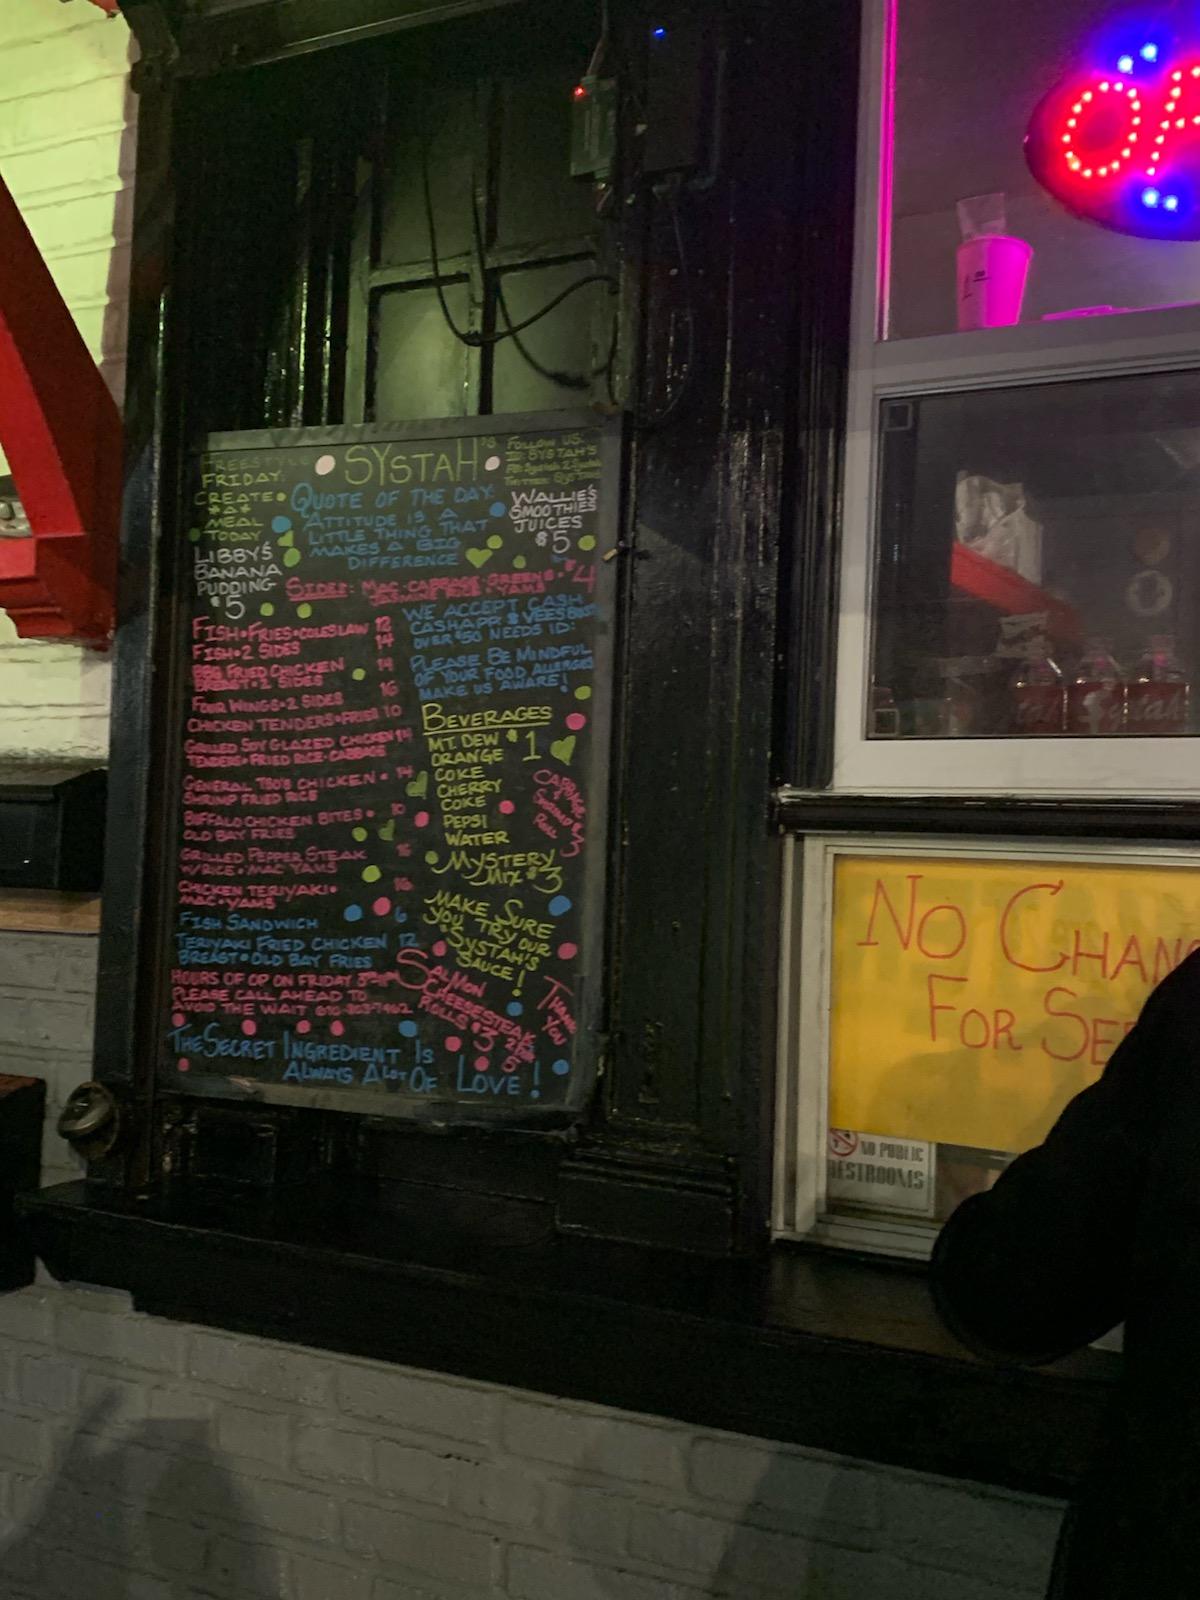 FREESTYLE
FRIDAY:
CREATE
*A*
MEAL
TODAY
LIBBY'S
BANANA
PUDDING
$5
SYSTAH'S
QUOTE OF THE DAY:
ATTITUDE IS A
LITTLE THING THAT
MAKES A BIG
DIFFERENCE
FOLLOW US:
WALLIE'S
SMOOTHIES
JUICES
$5
SIDES: MAC•CABBAGE•GREENS• $4
YAMS
FISH•FRIES•COLESLAW 12
FISH•2 SIDES 14
BBQ FRIED CHICKEN 14
BREAST•2 SIDES
FOUR WINGS•2 SIDES 16
CHICKEN TENDERS•FRIES 10
GRILLED SOY GLAZED CHICKEN 14
TENDERS•FRIED RICE•CABBAGE
GENERAL TSO'S CHICKEN• 14
SHRIMP FRIED RICE
BUFFALO CHICKEN BITES• 10
OLD BAY FRIES
GRILLED PEPPER STEAK 16
W/RICE•MAC YAMS
CHICKEN TERIYAKI• 16
MAC•YAMS
FISH SANDWICH 6
TERIYAKI FRIED CHICKEN 12
BREAST•OLD BAY FRIES
HOURS OF OP ON FRIDAY
PLEASE CALL AHEAD TO
AVOID THE WAIT
WE ACCEPT CASH
CASHAPP &
OVER $50 NEEDS ID!
PLEASE BE MINDFUL
OF YOUR FOOD ALLERGIES
MAKE US AWARE!
BEVERAGES
MT. DEW $1
ORANGE
COKE
CHERRY
COKE
PEPSI
WATER
MYSTERY
MIX $3
CABBAGE
ROLL
$3
MAKE SURE
YOU TRY OUR
"SYSTAH'S
SAUCE!
SALMON
CHEESESTEAK
ROLLS $3
THANK
YOU
THE SECRET INGREDIENT IS
ALWAYS A LOT OF LOVE!
NO CHAN
FOR SE
NO PUBLIC
RESTROOMS